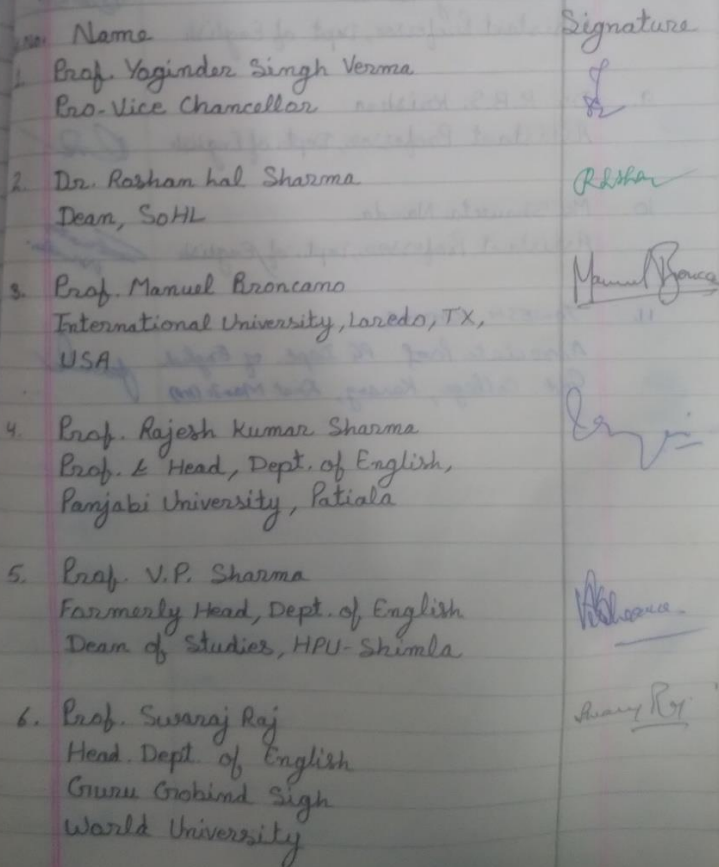 Name Signature
1. Prof. Yoginder Singh Verma
Pro-Vice Chancellor
2. Dr. Roshan Lal Sharma
Dean, SOHL
3. Prof. Manuel Broncano
International University, Laredo, TX,
USA
4. Prof. Rajesh Kumar Sharma
Prof. & Head, Dept. of English,
Panjabi University, Patiala
5. Prof. V.P. Sharma
Formerly Head, Dept. of English
Dean of Studies, HPU-Shimla
6. Prof. Swaraj Raj
Head. Dept. of English
Guru Gobind Sigh
World University